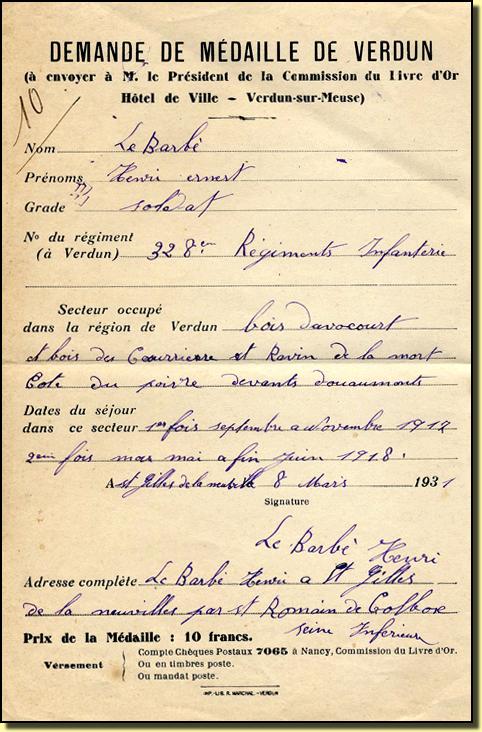 DEMANDE DE MÉDAILLE DE VERDUN
(à envoyer à M. le Président de la Commission du Livre d'Or
Hôtel de Ville – Verdun-sur-Meuse)
10
Nom Le Barbé
Prénoms Henri ernest
Grade soldat
No du régiment
(à Verdun) 328em Régiments Infanterie
Secteur occupé
dans la région de Verdun bois davocourt
et bois des Courriere et Ravin de la mort
Cote du poivre devants douaumonts
Dates du séjour
dans ce secteur 1er fois septembre a Novembre 1917
2em fois mai a fin Juin 1918.
A st Gilles de la 8 Mars 1931
Signature
Le Barbé Henri
Adresse complète Le Barbé Henri a St Gilles
de la neuvilles par st Romain de Colbosc
seine Inferieur
Prix de la Médaille : 10 francs.
Versement
Compte Chèques Postaux 7065 à Nancy, Commission du Livre d'Or.
Ou en timbres poste.
Ou mandat poste.
IMP.-LIB. R. MARCHAL. -VERDUN